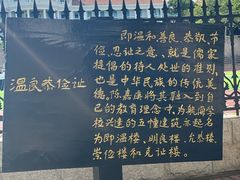 温良恭俭让
即温和善良、恭敬节
俭、忍让之意、就是儒家
提倡的待人处世的准则,
也是中华民族的传统美
德。陈嘉庚将其融入到自
己的教育理念中,为航海学
校兴建的五幢建筑亦起名
为即温楼、明良楼、允恭楼、
崇俭楼和克让楼。